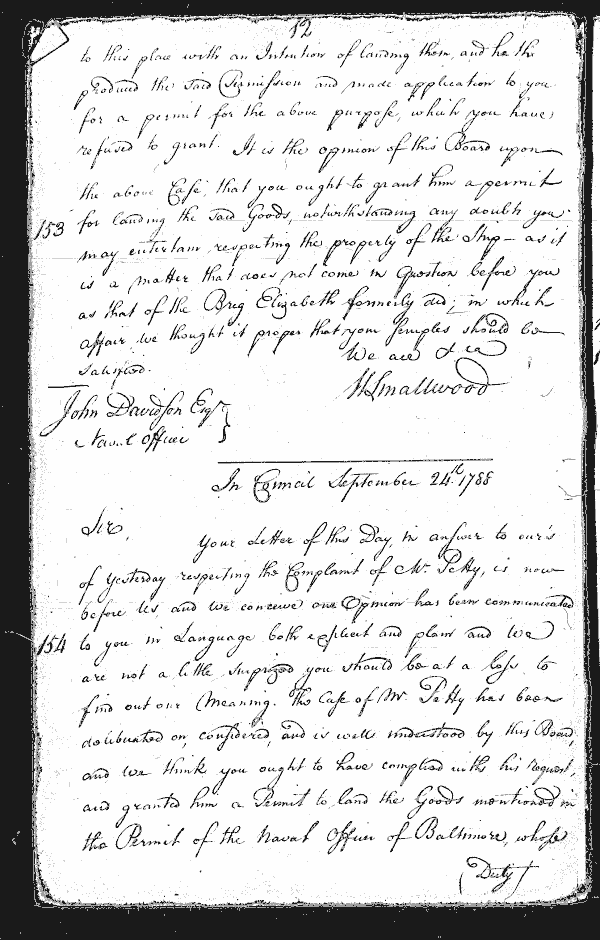 12
to this place with an Intention of landing them, and he the
produced the said Permission and made application to you
for a permit for the above purpose, which you have
refused to grant. It is the opinion of this Board upon
the above Case that you ought to grant him a permit
153 for landing the said Goods, notwithstanding any doubts you
may entertain, respecting the property of the Ship – as it
is a matter that does not come in Question before you
as that of the Brig Elizabeth formerly did; in which
affair we thought it proper that your Scruples should be
satisfied.
We are &ca
W Smallwood
John Davidson Esqr
Naval Officer
In Council September 24th 1788
Sir,
Your Letter of this Day, in answer to our's
of Yesterday respecting the Complaint of Mr. Petty, is now
before Us and we conceive our Opinion has been communicated
154 to you in Language both explicit and plain and We
are not a little surprized you should be at a loss to
find out our Meaning. The Case of Mr. Petty has been
deliberated on, considered, and is well understood by this Board,
and we think you ought to have complied with his request,
and granted him a Permit to land the Goods mentioned in
the Permit of the Naval Officer of Baltimore, whose
Duty